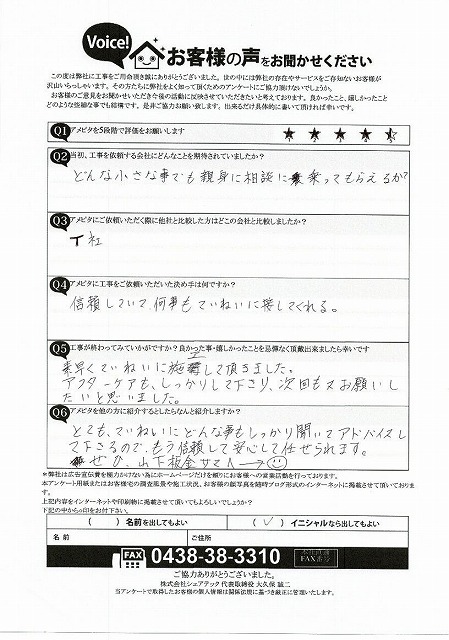 Voice!
お客様の声をお聞かせください
この度は弊社に工事をご用命頂き誠にありがとうございました。世の中には弊社の存在やサービスをご存知ないお客様が
沢山いらっしゃいます。その方たちに弊社をよく知って頂くためのアンケートにご協力頂けないでしょうか。
お客様のご意見をお聞かせいただき今後の活動に反映させていただきたいと考えております。良かったこと、嬉しかったこと
どのような些細な事でも結構です。是非ご協力お願い致します。出来るだけ具体的に書いて頂ければ幸いです。
Q1 アメピタを5段階で評価をお願いします ★ ★ ★ ★ ★
Q2 当初、工事を依頼する会社にどんなことを期待されていましたか?
どんな小さな事でも親身に相談に乗ってもらえるか?
Q3 アメピタにご依頼いただく際に他社と比較した方はどこの会社と比較しましたか?
T社
Q4 アメピタに工事をご依頼いただいた決め手は何ですか?
信頼していて、何事もていねいに接してくれる。
Q5 工事が終わってみていかがですか?良かった事・嬉しかったことを忌憚なく頂戴出来ましたら幸いです
素早くていねいに施工して頂きました。
アフターケアも、しっかりして下さり、次回もお願いし
たいと思いました。
Q6 アメピタを他の方に紹介するとしたらなんと紹介しますか?
とても、ていねいにどんな事もしっかり聞いてアドバイスし
て下さるので、もう信頼して安心して任せられます。
ぜひ、山下板金サマへ→
*弊社は広告宣伝費を極力かけない為にホームページだけを頼りにお客様への営業活動を行っております。
本アンケート用紙またはお客様宅の調査風景や施工状況、お客様の顔写真を随時ブログ形式のインターネットに掲載させて頂いております。
上記内容をインターネットや印刷物に掲載させて頂いてもよろしいでしょうか?
下記の中から○印をお付下さい。
( )名前を出してもよい (✓)イニシャルなら出してもよい
名前 ご住所
FAX 0438-38-3310
ご協力ありがとうございました。
株式会社シェアテック 代表取締役 大久保 誠二
当アンケートで取得したお客様の個人情報は関係法規に基づき厳正に管理いたします。